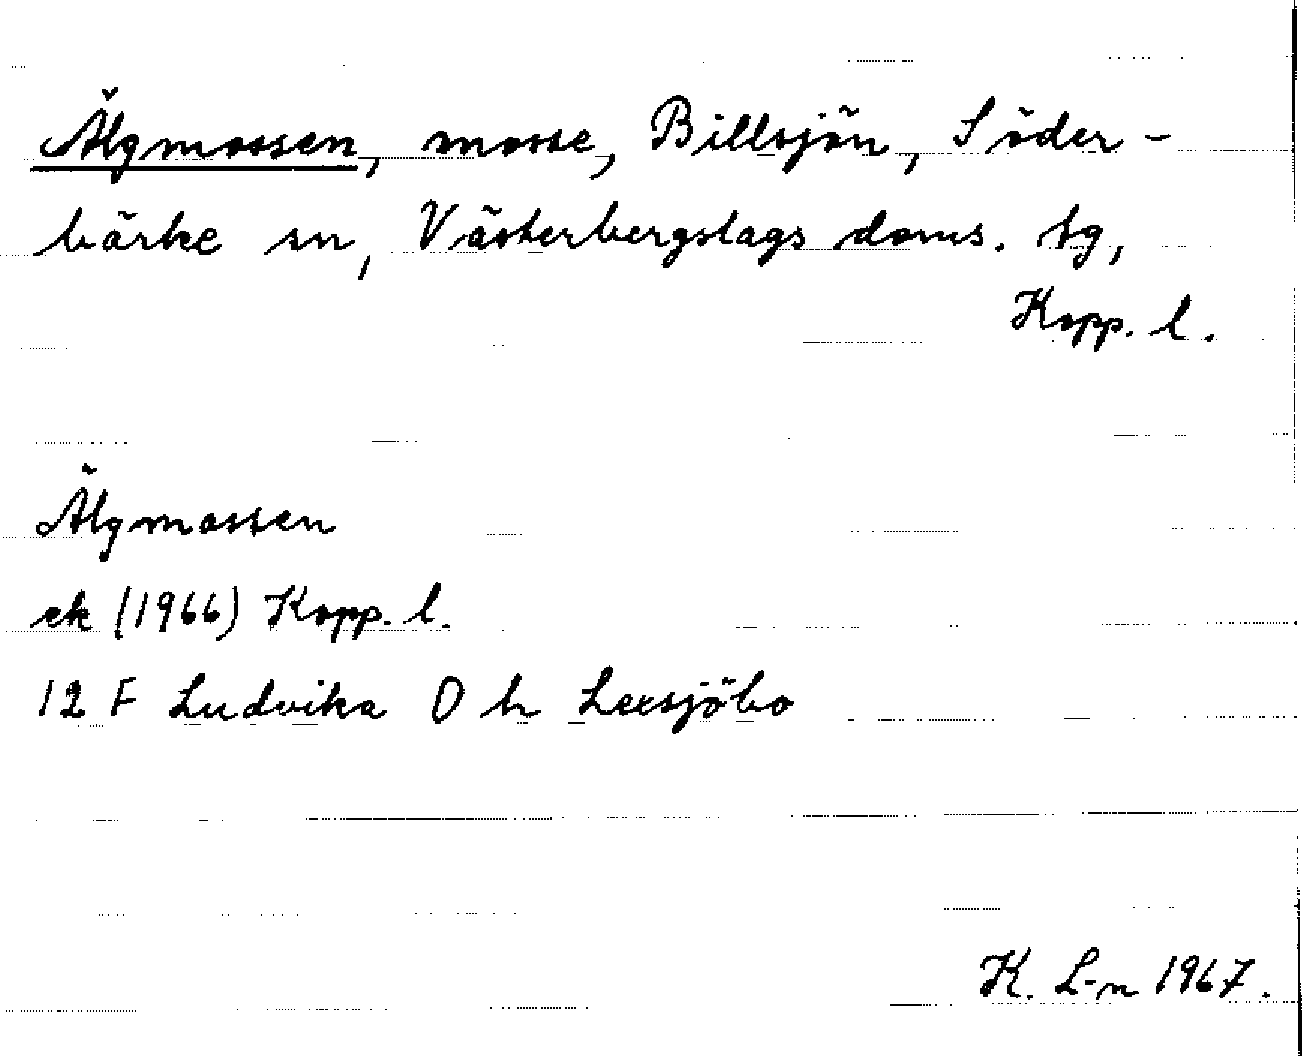 Älgmossen, mosse, Billsjön, Söder-
bärke sn, Västerbergslags doms. tg,
Kopp. l.
Älgmossen
ek (1966) Kopp. l.
12 F Ludvika 0 h Leersjöbo
K. L-n 1967.